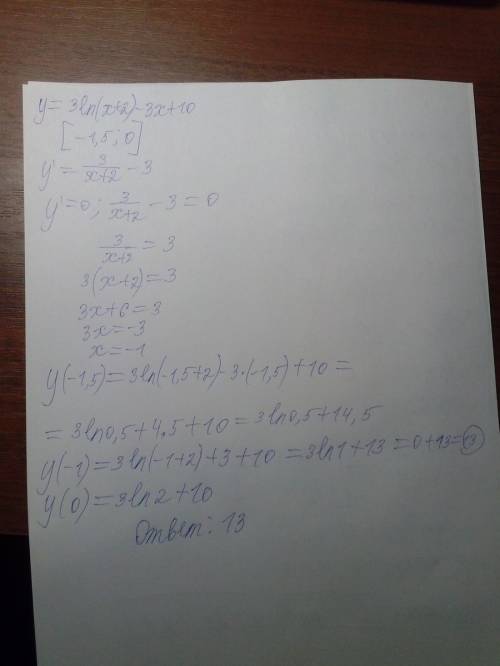 y = 3ln(x+2)-3x+10
[-1,5; 0]
y' = 3/(x+2) - 3
y'=0; 3/(x+2) - 3 = 0
3/(x+2) = 3
3(x+2)=3
3x+6=3
3x=-3
x=-1
y(-1,5)=3ln(-1,5+2)-3·(-1,5)+10=
=3ln0,5+4,5+10=3ln0,5+14,5
y(-1)=3ln(-1+2)+3+10=3ln1+13=0+13=13
y(0)=3ln2+10
Ответ: 13